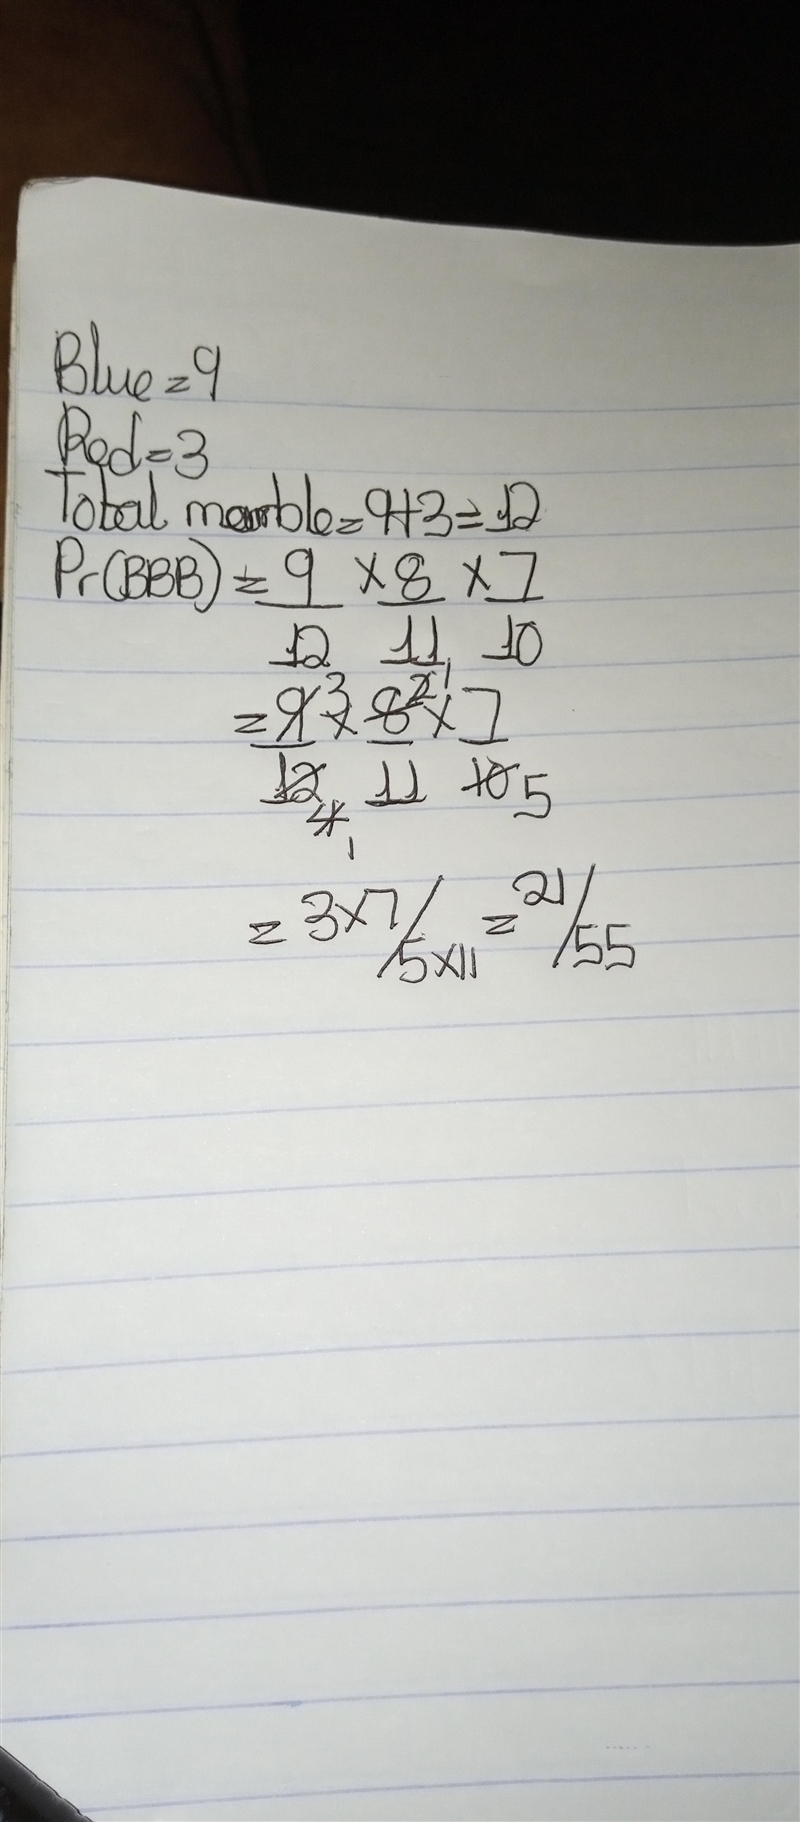 Blue = 9
Red = 3
Total marble = 9+3 = 12
Pr(BBB) = 9 × 8 × 7
12 11 10
= 9 3 × 8 2 1 × 7
12 11 10 5
4
1
= 3×7/5×11 = 21/55